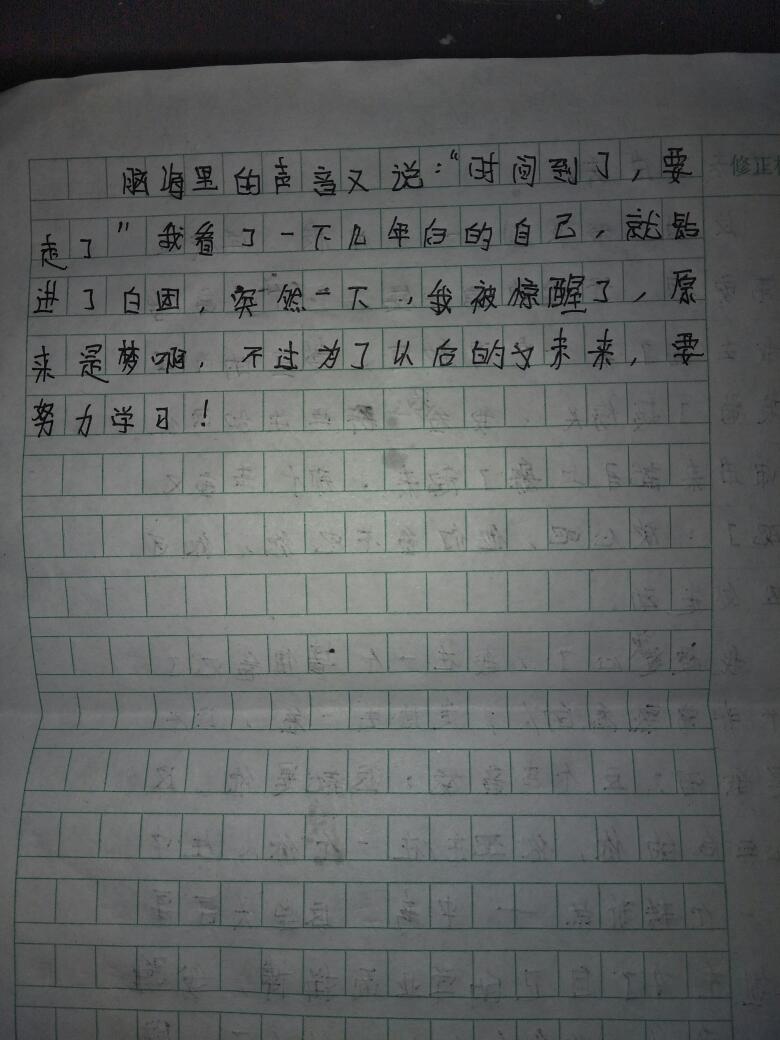 脑海里的声音又说：“时间到了，要
走了”我看了一下几年后的自己，就钻
进了白圈，突然一下，我被惊醒了，原
来是梦啊，不过为了以后的未来，要
努力学习！
修正